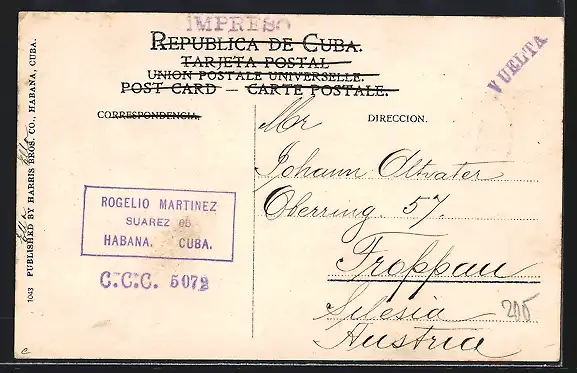 IMPRESO
REPUBLICA DE CUBA.
TARJETA POSTAL
UNION POSTALE UNIVERSELLE.
POST CARD — CARTE POSTALE.
VUELTA
CORRESPONDENCIA.
DIRECCION.
Mr
Johann Altvater
Oberring 57.
Troppau
Silesia
Austria
205
ROGELIO MARTINEZ
SUAREZ 65
HABANA. CUBA.
C.C.C. 5072
1043 PUBLISHED BY HARRIS BROS. CO., HABANA, CUBA.
c